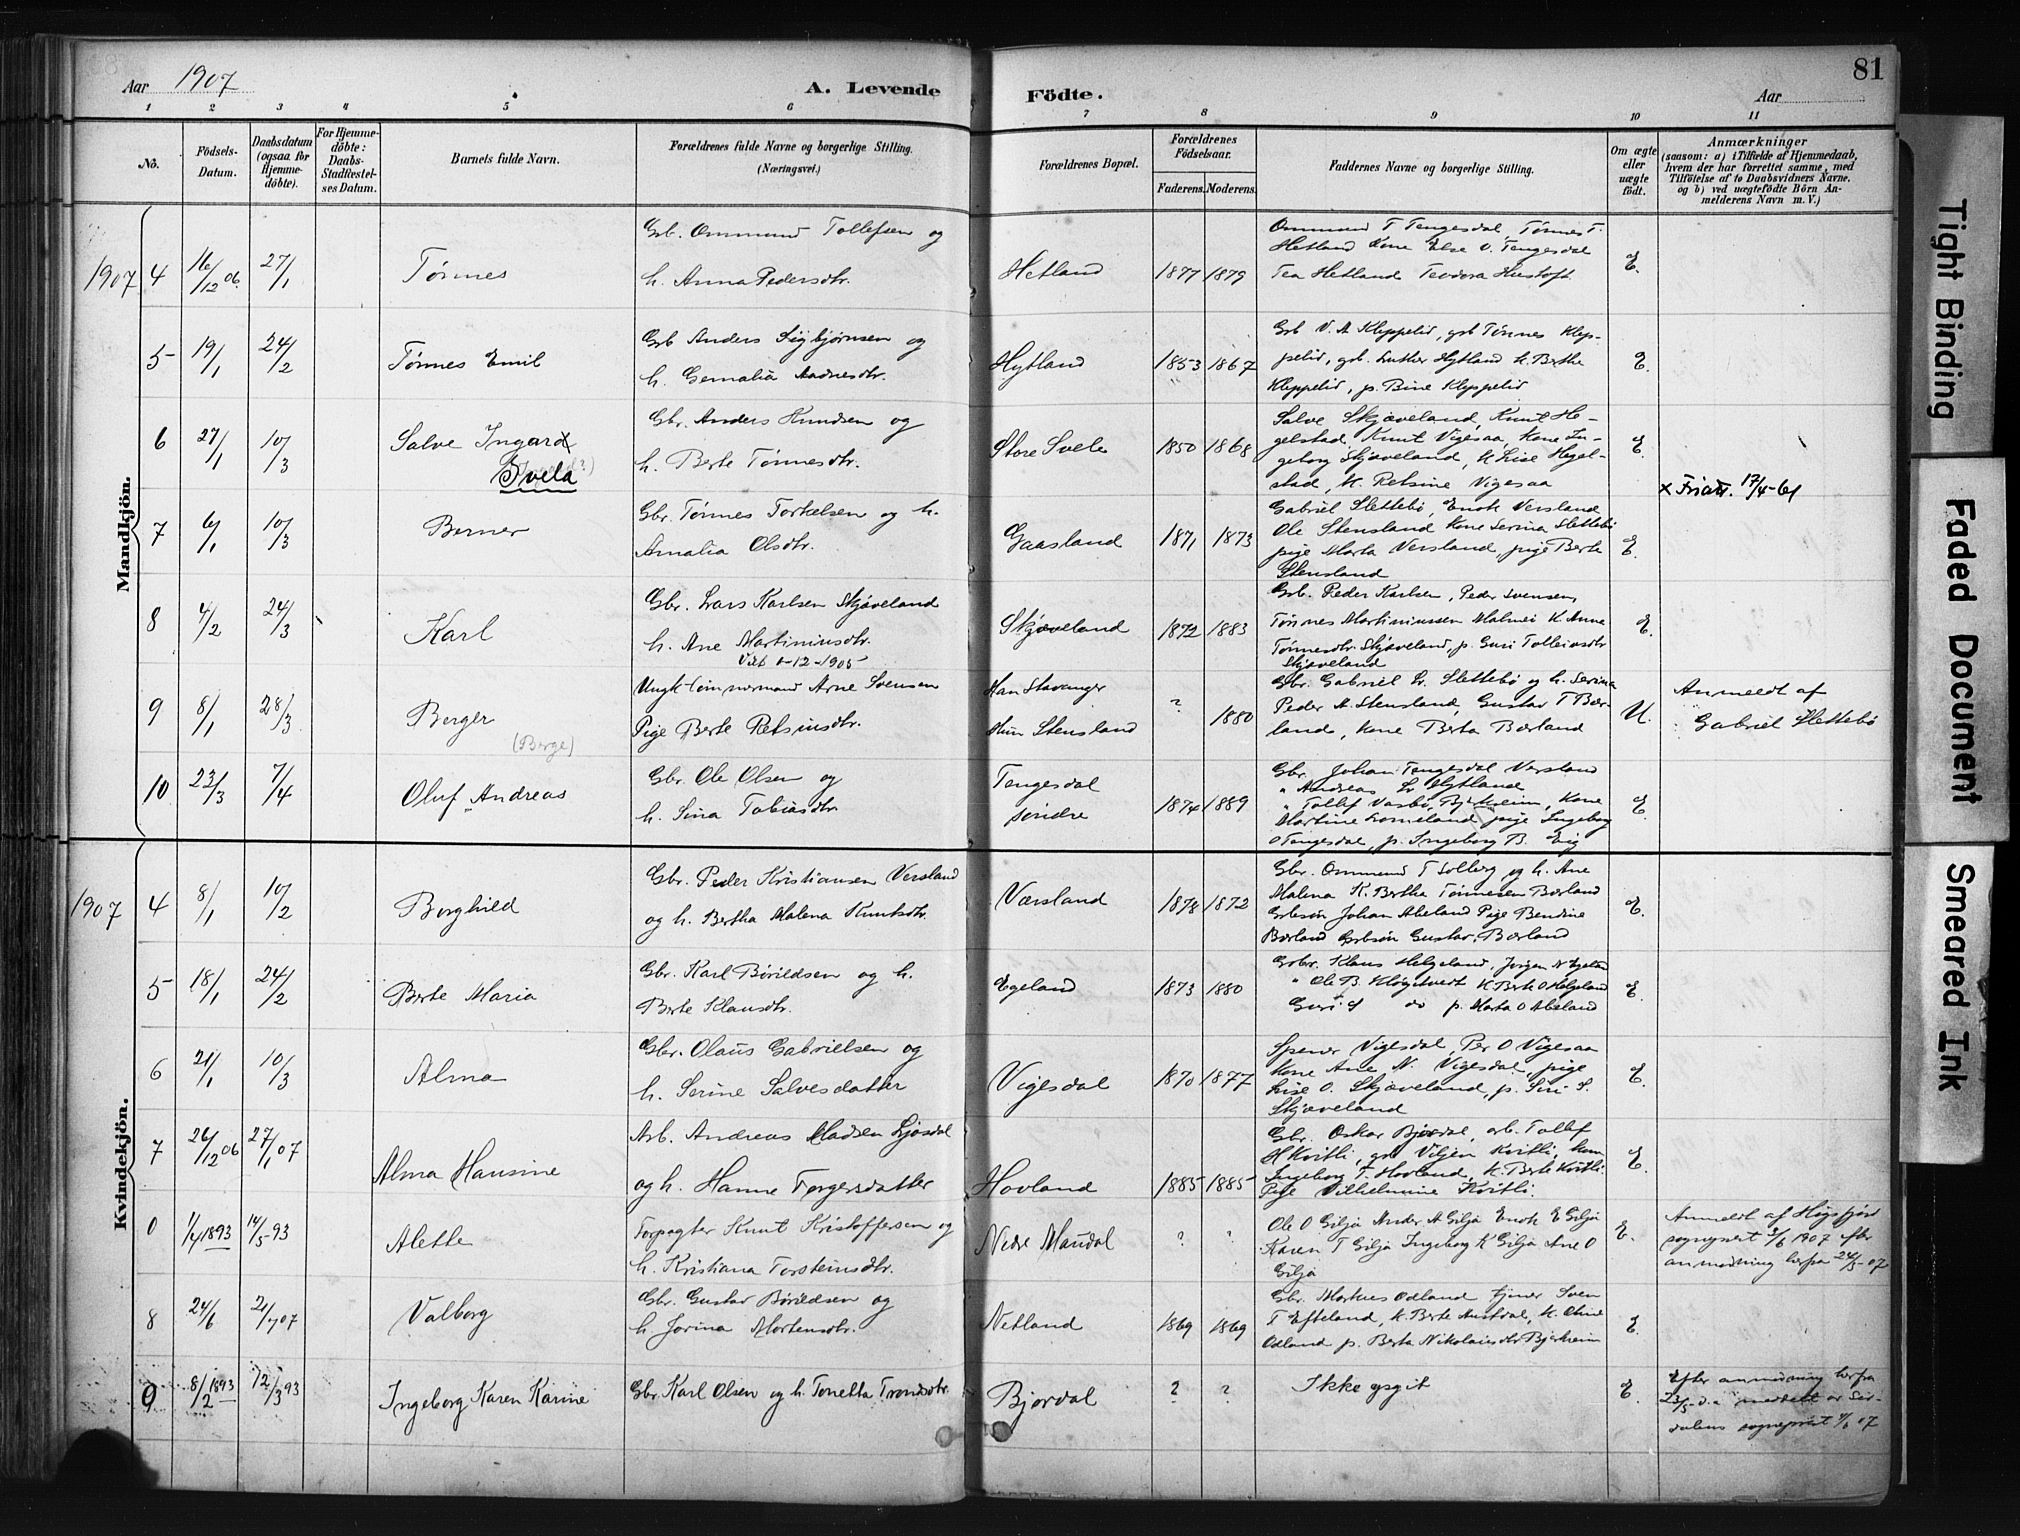 Aar 1907
A. Levende Födte.
Aar
81
1 2 3 4 5 6 7 8 9 10 11
No.
Födsels-Datum.
Daabsdatum (ogsaa for Hjemmedöbte).
For Hjemmedöbte: Daabs-Stadfæstelses Datum.
Barnets fulde Navn.
Forældrenes fulde Navne og borgerlige Stilling.
(Næringsvei.)
Forældrenes Bopæl.
Forældrenes Födselsaar.
Faderens. Moderens.
Faddernes Navne og borgerlige Stilling.
Om ægte eller uægte födt.
Anmærkninger
(saasom: a) i Tilfælde af Hjemmedaab, hvem der har forrettet samme, med Tilföielse af to Daabsvidners Navne, og b) ved uægtefödte Börn Anmelderens Navn m. V.)
Mandkjön.
1907 4 16/12 06. 27/1 Tønnes
Gb. Ommund Tollefsen og
h. Anna Pedersdtr.
Hetland 1877 1879
Ommund T Tengesdal, Tønnes T.
Hetland Kone Else O. Tengesdal
Tea Hetland Teodora Hustoft
E.
5 19/1 24/2 Tønnes Emil
Gb Anders Sigbjørnsen og
h. Gemalia Aadnesdtr.
Hytland 1853 1867
Gb V. A Kleppelid, gb Tønnes Klep-
pelid, gb. Luther Hytland k. Berthe
Kleppelid, p. Bine Kleppelid
E.
6 27/1 10/3 Salve Ingard
Svela
Gb. Anders Knudsen og
h. Berte Tønnesdtr.
Store Svele 1850 1868
Salve Skjæveland, Knut He-
gelstad, Knut Vigesaa, Kone In-
geborg Skjæveland, K Lise Hegel-
stad, K. Retsine Vigesaa
E.
x 17/4-61
7 6/1 10/3 Berner
Gbr. Tønnes Torkelsen og h.
Amalia Olsdtr.
Gaasland 1871 1873
Gabriel Slettebø, Enok Versland
Ole Stensland Kone Serina Slettebø
pige Marta Versland, pige Berte
Stensland
E.
8 4/2 24/3 Karl
Gbr. Lars Karlsen Skjæveland
h. Ane Martiniusdtr.
-12-1905
Skjæveland 1872 1883
Gb. Peder Karlsen, Peder Svensen,
Tønnes Martiniussen Malmei K Anne
Tønnesdtr. Skjæveland, p. Guri Tolleivsdtr
Skjæveland
E.
9 8/1 28/3 Berger
(Berge)
Ungk. tømmermand Arne Svensen
Pige Berte Retsiusdtr.
Han Stavanger
Hun Stensland
? 1880
Gbr. Gabriel L. Slettebø og h. Serina
Peder A. Stensland, Gustav T Bær-
land, kone Berta Bærland
U.
Anmeldt af
Gabriel Slettebø
10 23/3 7/4 Oluf Andreas
Gbr. Ole Olsen og
h. Sina Tobiasdtr.
Tengesdal
søndre
1874 1889
Gbr. Johan Tengesdal Versland
" Andreas L. Hytland
" Tollef Varsbø, Bjerkreim, Kone
Martine Lomeland pige Ingeborg
O Tengesdal, p. Ingeborg B. Eig
E.
Kvindekjön.
1907 4 8/1 10/2 Borghild
Gbr. Peder Kristiansen Versland
og h. Bertha Malena Knutsdtr.
Værsland 1878 1872
Gbr. Ommund T Solberg og h. Ane
Malena K. Bertha Tønnesen Bærland
Grbsøn Johan Abeland Pige Bendine
Bærland Grbsøn Gustav Bærland
E.
5 18/1 24/2 Berte Maria
Gbr. Karl Børildsen og h.
Berte Klausdtr.
Egeland 1873 1880
Grbr. Klaus Helgeland, Jørgen N Egeland
" Ole B. Høgetvedt K Berte O Helgeland
Guri S do p. Marta O Abeland
E.
6 21/1 10/3 Alma
Gbr. Olaus Gabrielsen og
h. Serine Salvesdatter
Vigesdal 1870 1877
Spener Vigesdal, Per O Vigesaa
Kone Ane N. Vigesdal, pige
Lise O. Skjæveland, p. Siri S.
Skjæveland
E.
7 26/12 06 27/1 07 Alma Hansine
Arb. Andreas Madsen Ljosdal
og h. Hanne Torgersdatter
Hovland 1885 1885
Gbr. Oskar Bjordal, arb. Tollef
H Kvitli, gb Viljen Kvitli, kone
Ingeborg T. Hovland, K. Berte Kvitli
Pige Vilhelmine Kvitli.
E.
0 1/4 1893 14/5-93 Alette
Forpagter Knut Kristoffersen og
h. Kristiana Torsteinsdtr.
Nedre Maudal ? ?
Ole O Gilja Ander A Gilja Enok E Gilja
Karen T Gilja Ingeborg K Gilja Ane O
Gilja
E.
Anmeldt af Høgsfjord
sogneprest 3/6 1907 efter
anmodning herfra 24/5-07
8 24/6 21/7 07 Valborg
Gbr. Gustav Børildsen og
h Jorina Mortensdtr.
Netland 1869 1869
Gbr. Markus Odland tjener Sven
T Efteland, K. Berte Austdal, K. Oline
Odland p. Berta Nikolaisdtr Bjerkreim
E.
9 8/2 1893 12/3 93 Ingeborg Karen Karine
Gbr. Karl Olsen og h. Tonetta Trondsdtr.
Bjordal ? ?
Ikke opgit
E.
Efter anmodning herfra
23/5 d.a. meddelt av Sir-
dalens sogneprest 4/6 07
Tight Binding
Faded Document
Smeared Ink